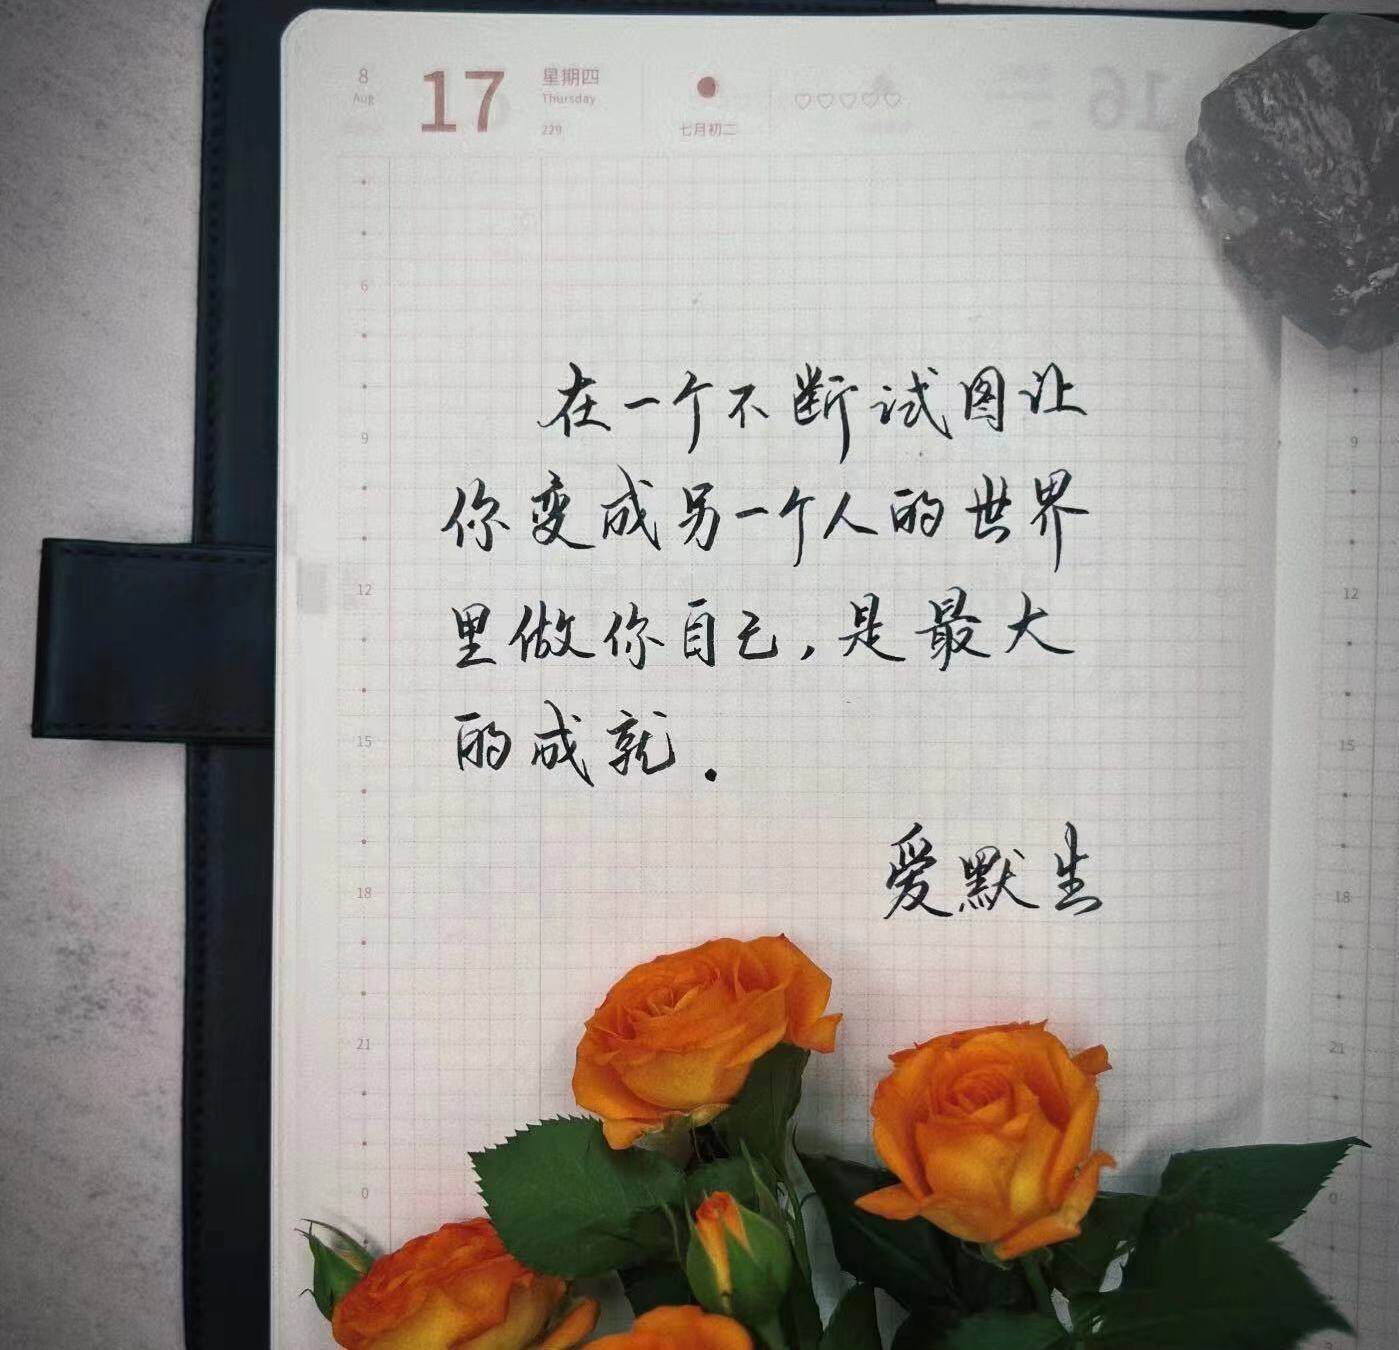 8
Aug
17
星期四
Thursday
229
七月初二
16
6
9
12
15
18
21
0
在一个不断试图让
你变成另一个人的世界
里做你自己，是最大
的成就.
爱默生
9
12
15
18
21
0